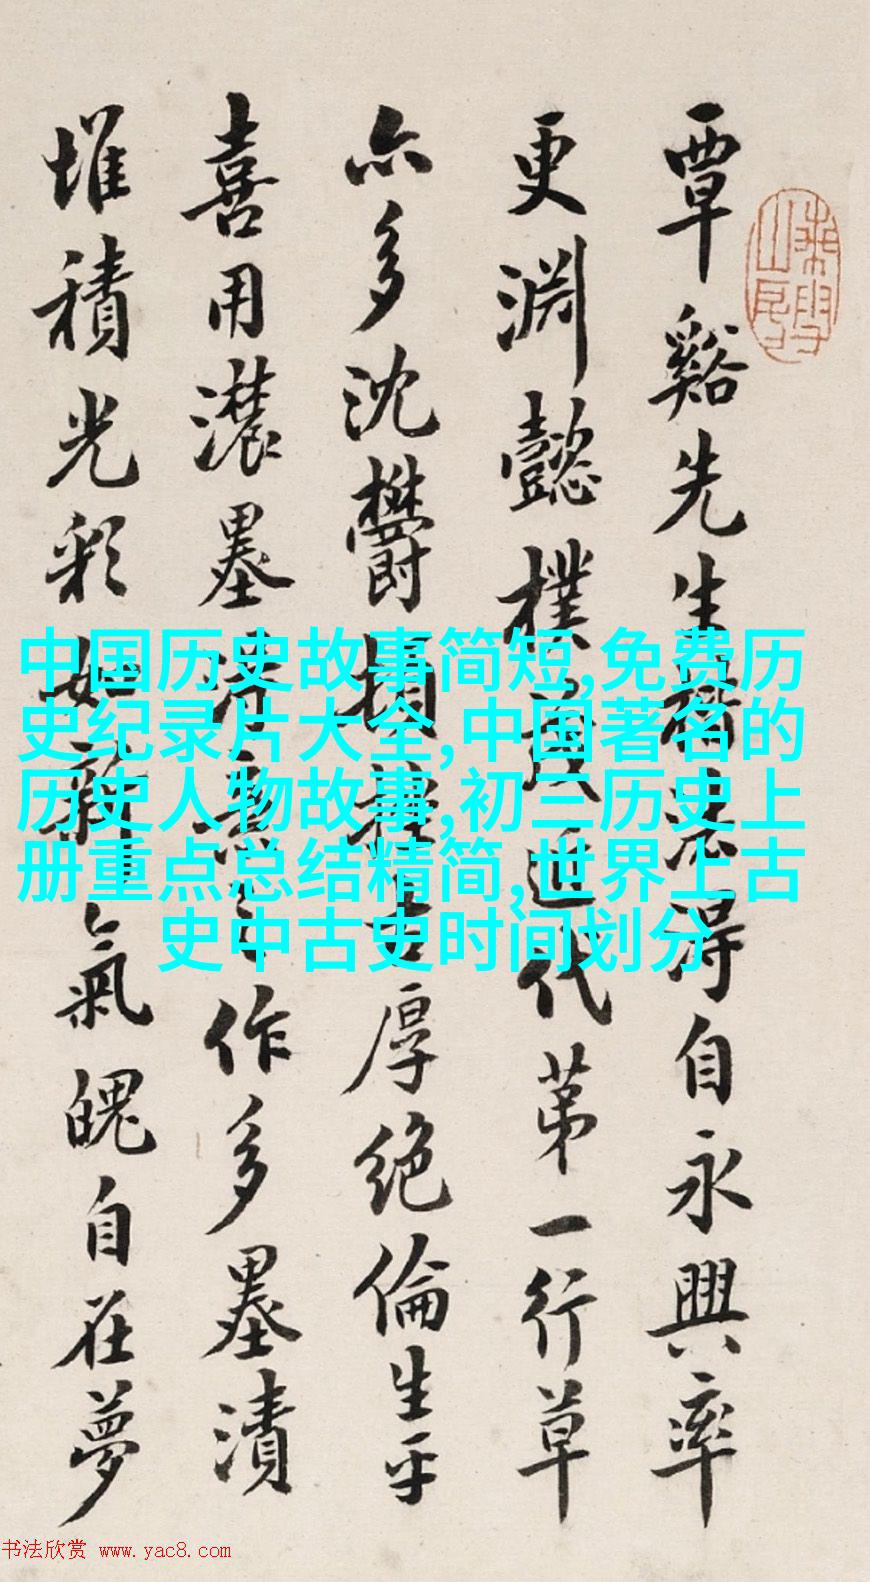 覃谿先生得自永興率
更淵懿樸茂近代第一行草
亦多沈鬱頓挫古厚絕倫生平
喜用濃墨意之作多墨漬
堆積光彩如新氣魄自在夢
中国历史故事简短,免费历
史纪录片大全,中国著名的
历史人物故事,初三历史上
册重点总结精简,世界上古
史中古史时间划分
书法欣赏 www.yac8.com